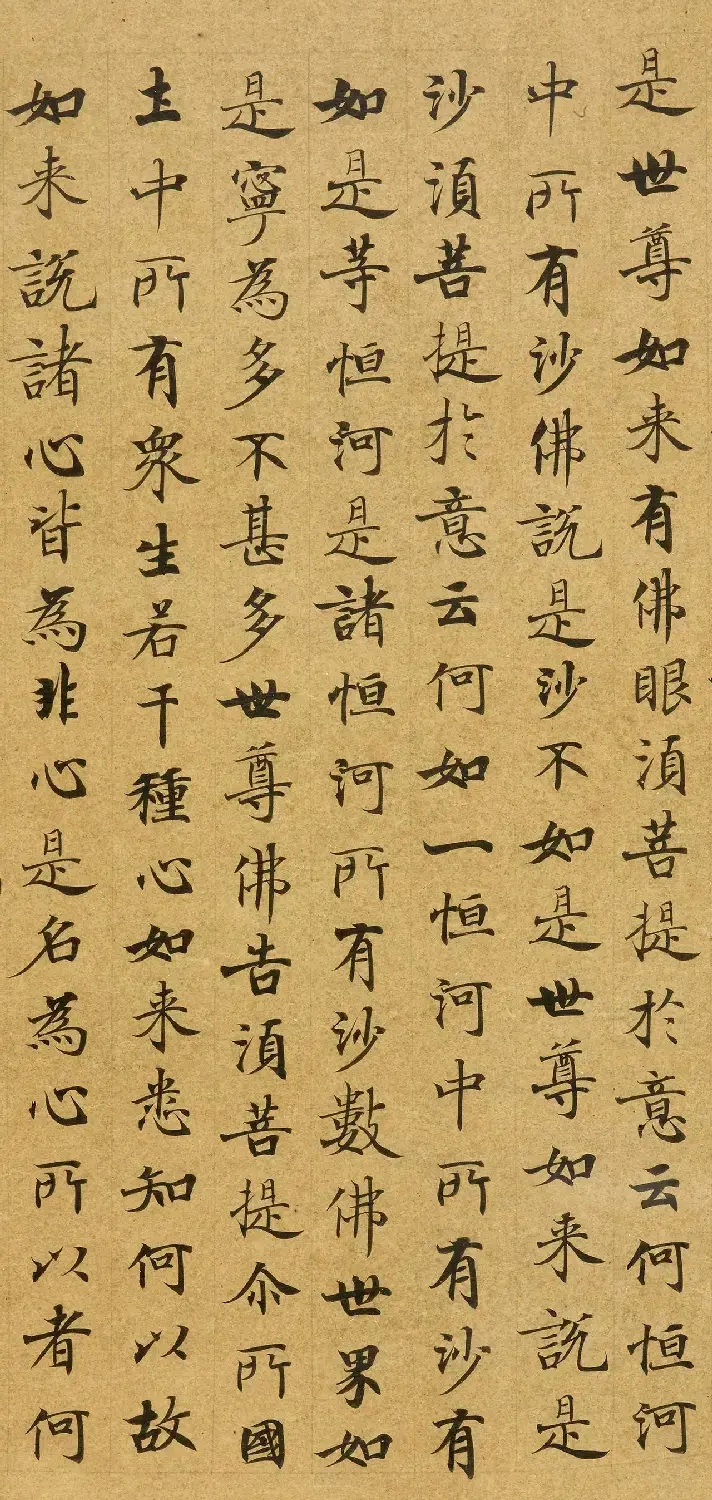 是世尊如来有佛眼湏菩提於意云何恒河
中所有沙佛說是沙不如是世尊如来說是
沙湏菩提於意云何如一恒河中所有沙有
如是等恒河是諸恒河所有沙數佛世界如
是寧為多不甚多世尊佛告湏菩提尒所國
土中所有衆生若干種心如来悉知何以故
如来說諸心皆為非心是名為心所以者何